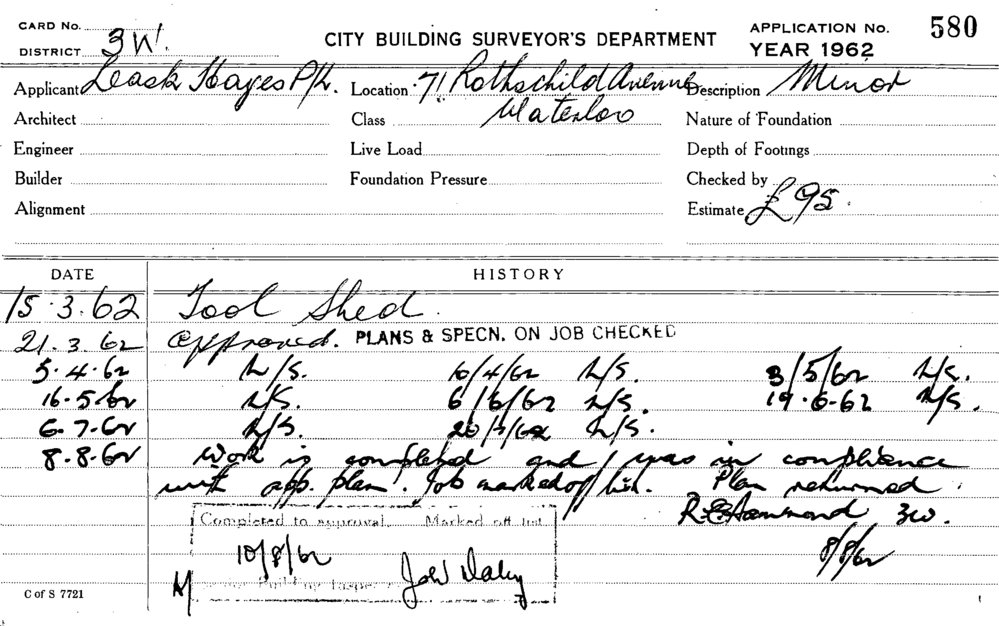 CARD No.
DISTRICT 3W.
CITY BUILDING SURVEYOR'S DEPARTMENT
APPLICATION No. 580
YEAR 1962
Applicant Leask Hayes P/L. Location 71 Rothschild Avenue Description Minor
Architect Class Waterloo Nature of Foundation
Engineer Live Load Depth of Footings
Builder Foundation Pressure Checked by
Alignment Estimate £95.
DATE HISTORY
15.3.62 Tool Shed.
21.3.62 Approved. PLANS & SPECN. ON JOB CHECKED
5.4.62 N/S. 10/4/62 N/S. 3/5/62 N/S.
16.5.62 N/S. 6/6/62 N/S. 19.6.62 N/S.
6.7.62 N/S. 20/7/62 N/S.
8.8.62 Work is completed and was in compliance
with app. plan. Job marked off list. Plan returned.
Completed to approval. Marked off list
R. Hammond 3W.
10/8/62
8/8/62
Building Inspec
John Daley
C of S 7721